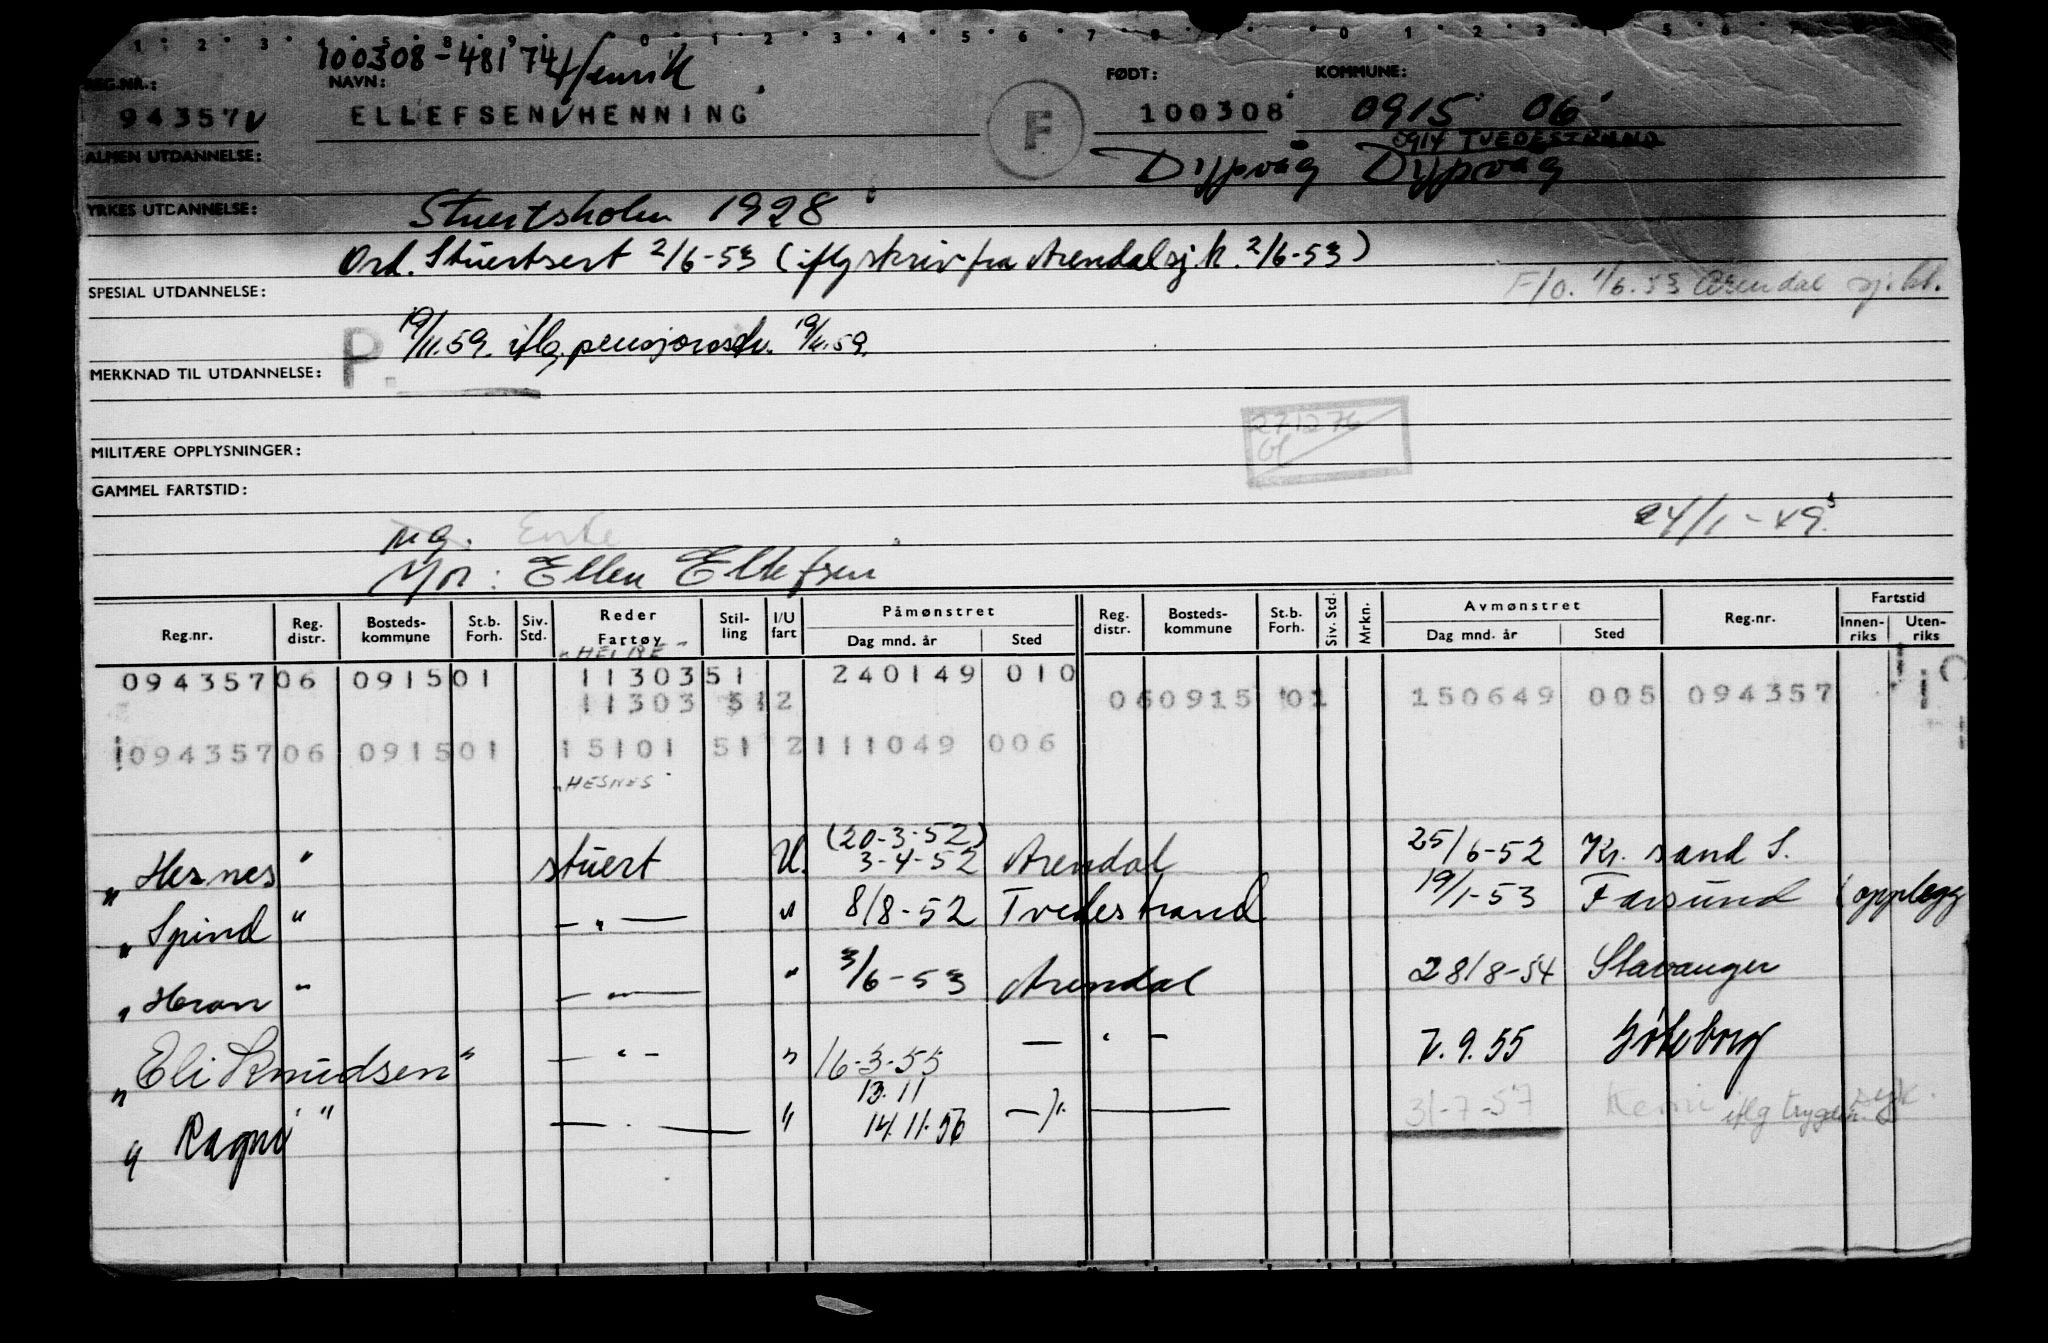 1 2 3 5 8 9 0 1 2 3 4 5 6 7 8 9 0 1 2 3 4 5 6 7
100308-48174 Henrik
REG.NR.: NAVN: FØDT: KOMMUNE:
94357 ELLEFSEN HENNING F 100308 0915 06
0914 TVEDESTRAND
ALMEN UTDANNELSE: Dypvåg Dypvåg
YRKES UTDANNELSE: Stuertskolen 1928
Ord. Stuertsert 2/6-53 (iflg skriv fra Arendal sj.k. 2/6-53)
SPESIAL UTDANNELSE: F/O. 1/6.53 Arendal sj.kt.
P. 19/11.59. iflg. pensjonssdv. 19/11.59.
MERKNAD TIL UTDANNELSE:
271276
MILITÆRE OPPLYSNINGER:
GAMMEL FARTSTID:
24/1-49.
Ug. Enke
Mor: Ellen Ellefsen
Reg.nr. Reg. distr. Bosteds-kommune St.b. Forh. Siv. Std. Reder Fartøy Stil-ling I/U fart Påmønstret Dag mnd. år Sted Reg. distr. Bosteds-kommune St.b. Forh. Siv. Std. Mrkn. Avmønstret Dag mnd. år Sted Reg.nr. Fartstid Innen-riks Uten-riks
094357 06 0915 01 11303 51 240149 010
11303 51 2 06 0915 01 150649 005 094357
094357 06 0915 01 15101 51 2 111049 006
"HESNES"
(20-3-52)
"Hesnes" stuert U. 3-4-52 Arendal 25/6-52 Kr. sand S.
"Spind" — " — " 8/8-52 Tvedestrand 19/1-53 Farsund (opplegg
"Heran" — " — " 3/6-53 Arendal 28/8-54 Stavanger
"Eli Knudsen" — " — " 16-3-55 — " — 7.9.55 Göteborg
13.11
"Ragni" — " — " 14.11.56 — " — 31-7-57 Kemi iflg trygden. syk.